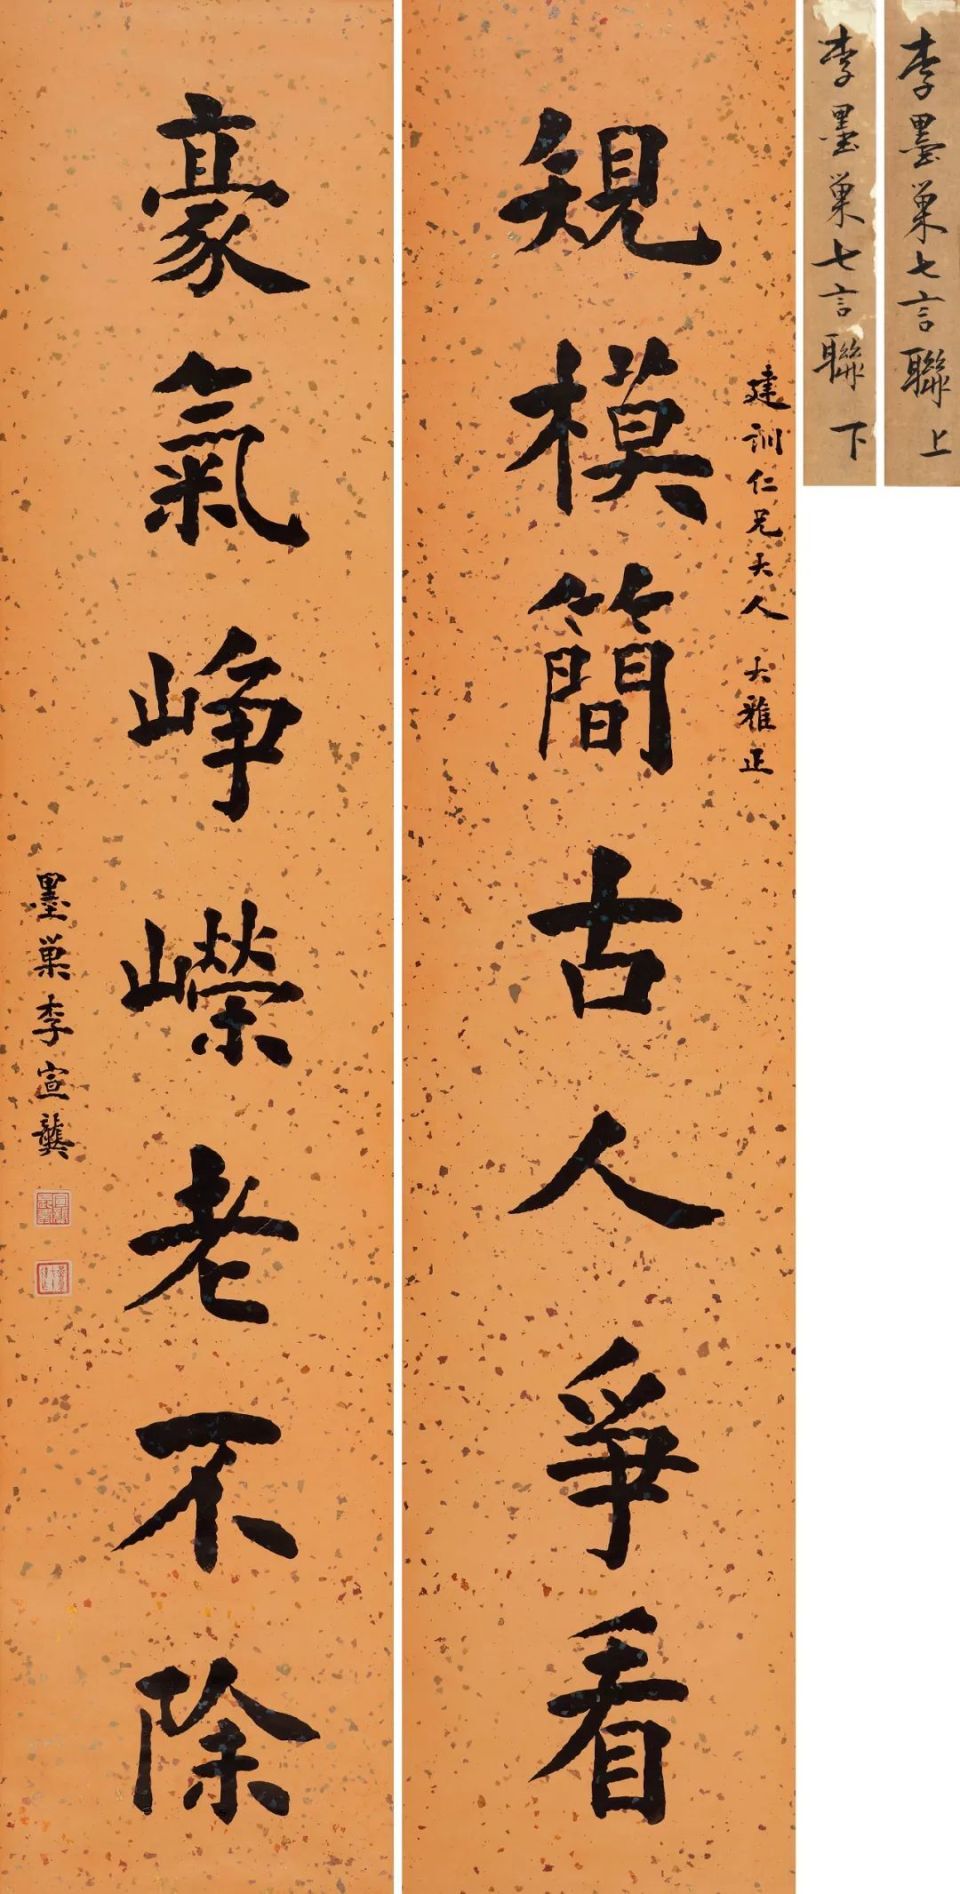 李墨巢七言聯 上
李墨巢七言聯 下
建訓仁兄大人 大雅正
規模簡古人爭看
豪氣崢嶸老不除
墨巢李宣龔